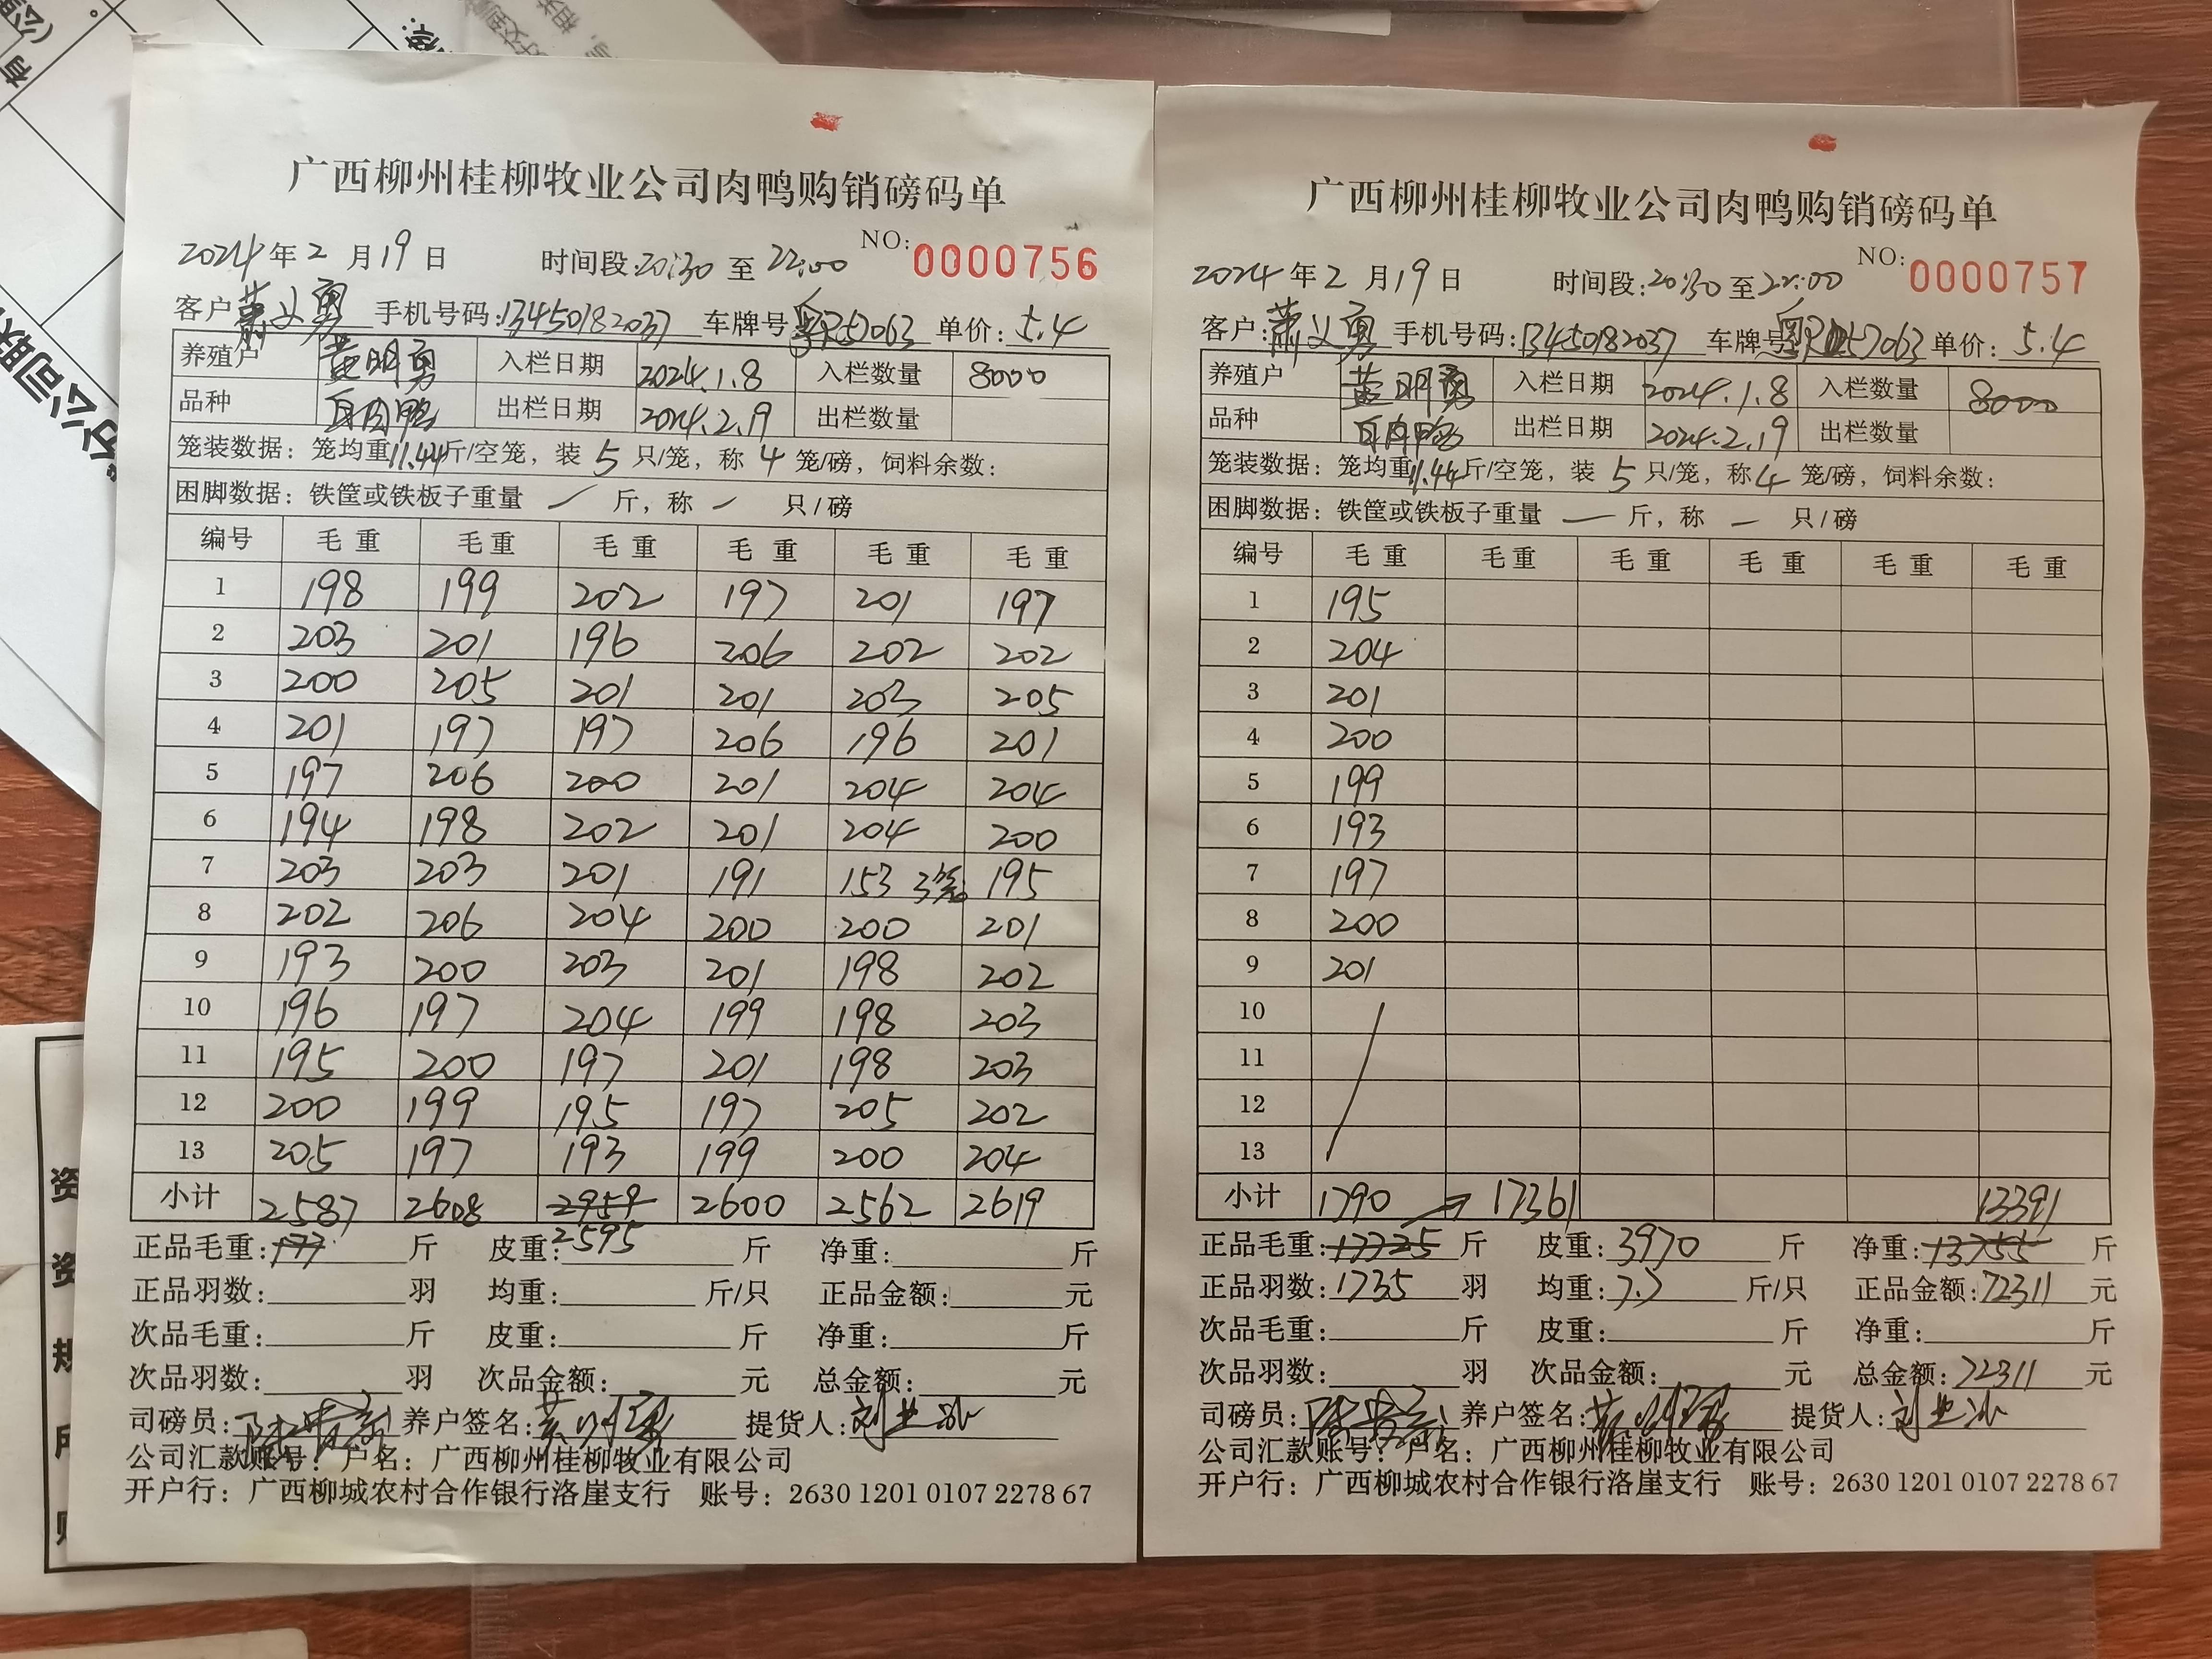 广西柳州桂柳牧业公司肉鸭购销磅码单
NO: 0000756
2024年2月19日 时间段:20:30至22:00
客户 萧义勇 手机号码:13450182037 车牌号 57063 单价:5.4
养殖户 黄明勇 入栏日期 2024.1.8 入栏数量 8000
品种 白肉鸭 出栏日期 2024.2.19 出栏数量
笼装数据: 笼均重11.44斤/空笼, 装5只/笼, 称4笼/磅, 饲料余数:
困脚数据: 铁筐或铁板子重量 — 斤, 称 — 只/磅
编号 毛重 毛重 毛重 毛重 毛重 毛重
1 198 199 202 197 201 197
2 203 201 196 206 202 202
3 200 205 201 201 203 205
4 201 197 197 206 196 201
5 197 206 200 201 204 204
6 194 198 202 201 204 200
7 203 203 201 191 153 3笼 195
8 202 206 204 200 200 201
9 193 200 203 201 198 202
10 196 197 204 199 198 203
11 195 200 197 201 198 203
12 200 199 195 197 205 202
13 205 197 193 199 200 204
小计 2587 2608 2959 2600 2562 2619
2595
正品毛重:177斤 皮重: 斤 净重: 斤
正品羽数: 羽 均重: 斤/只 正品金额: 元
次品毛重: 斤 皮重: 斤 净重: 斤
次品羽数: 羽 次品金额: 元 总金额: 元
司磅员: 养户签名:黄明勇 提货人:
公司汇款账号: 户名: 广西柳州桂柳牧业有限公司
开户行: 广西柳城农村合作银行洛崖支行 账号: 2630 1201 0107 2278 67
广西柳州桂柳牧业公司肉鸭购销磅码单
NO: 0000757
2024年2月19日 时间段:20:30至22:00
客户:萧义勇 手机号码:13450182037 车牌号 57063 单价:5.4
养殖户 黄明勇 入栏日期 2024.1.8 入栏数量 8000
品种 白肉鸭 出栏日期 2024.2.19 出栏数量
笼装数据: 笼均重11.44斤/空笼, 装5只/笼, 称4笼/磅, 饲料余数:
困脚数据: 铁筐或铁板子重量 — 斤, 称 — 只/磅
编号 毛重 毛重 毛重 毛重 毛重 毛重
1 195
2 204
3 201
4 200
5 199
6 193
7 197
8 200
9 201
10
11
12
13
小计 1790 → 17361 13391
正品毛重:17725斤 皮重:3970斤 净重:13755斤
正品羽数:1735羽 均重:7.7斤/只 正品金额:72311元
次品毛重: 斤 皮重: 斤 净重: 斤
次品羽数: 羽 次品金额: 元 总金额:72311元
司磅员: 养户签名:黄明勇 提货人:
公司汇款账号: 户名: 广西柳州桂柳牧业有限公司
开户行: 广西柳城农村合作银行洛崖支行 账号: 2630 1201 0107 2278 67